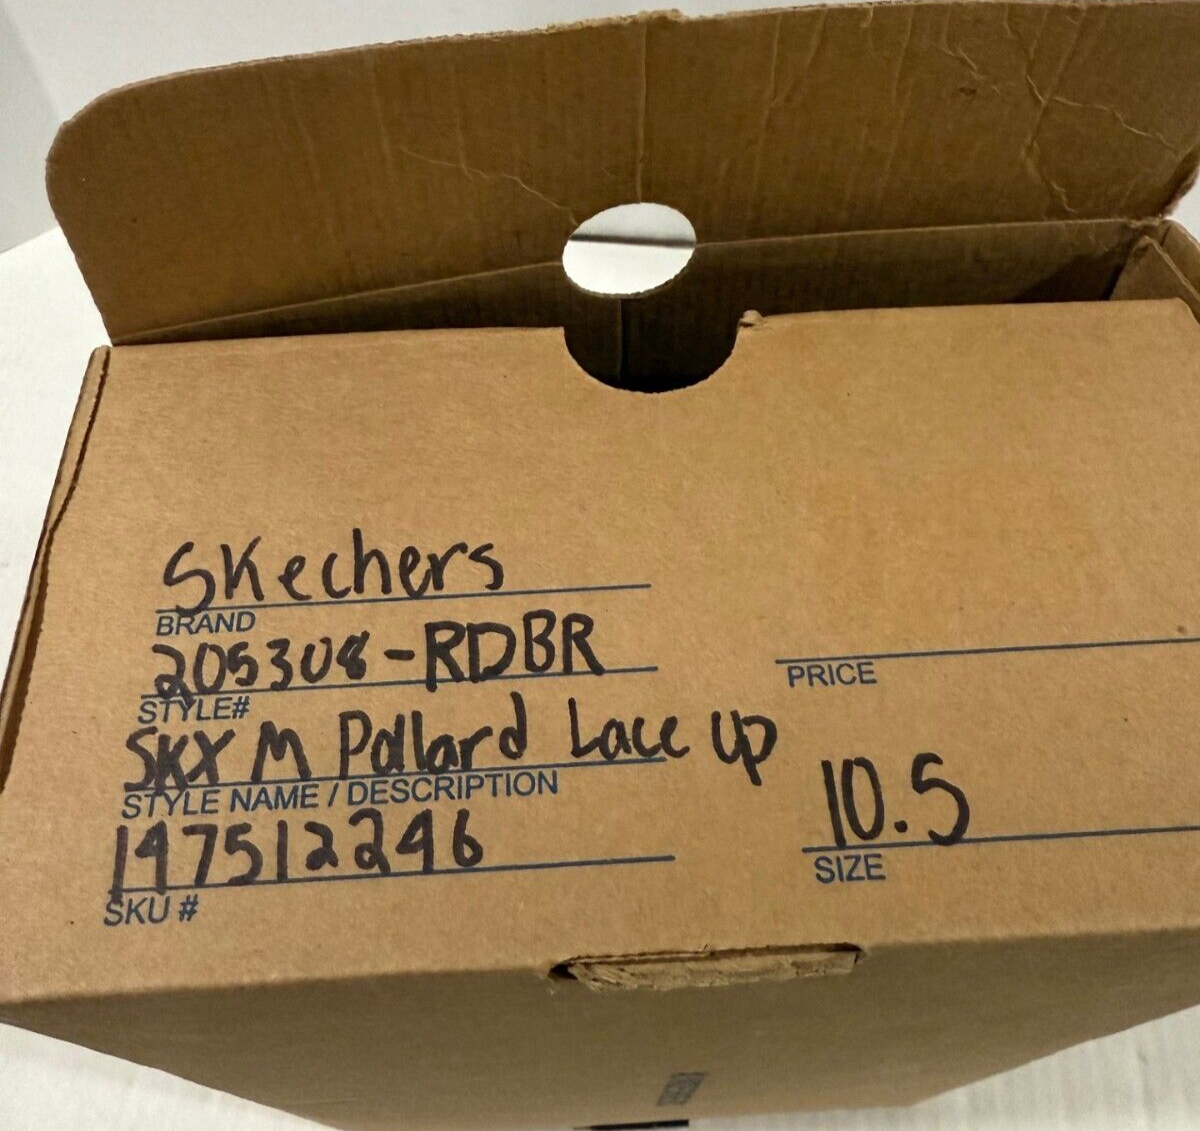 SKechers
BRAND
205308-RDBR
STYLE#
PRICE
SKX M Pollard Lace up
STYLE NAME / DESCRIPTION
10.5
SIZE
147512246
SKU #